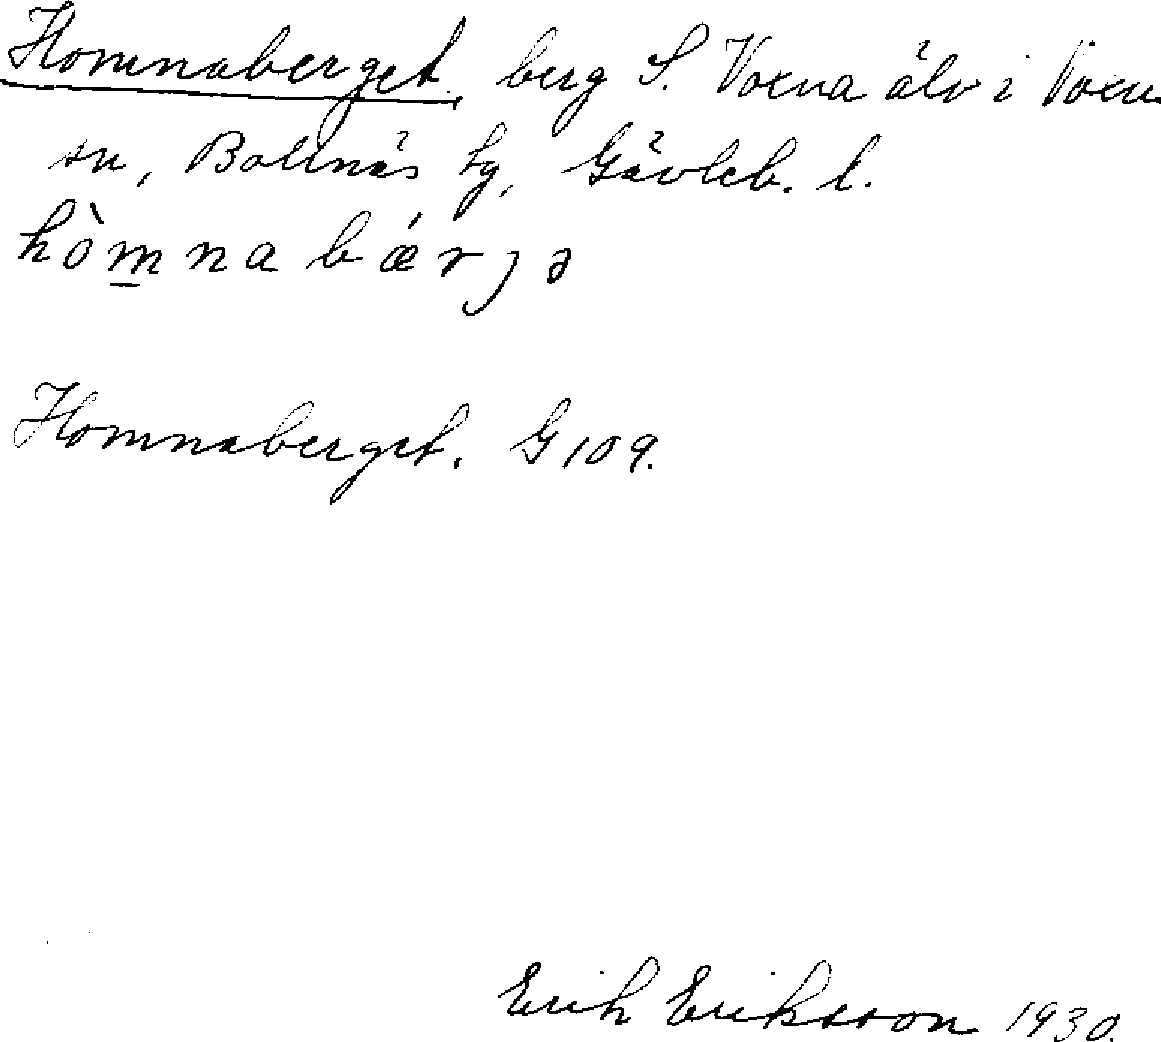 Homnaberget, berg S. Voxna älv i Voxna
sn, Bollnäs tg, Gävleb. l.
hòm̲na bǽrjə
Homnaberget. G 109.
Erik Eriksson 1930.